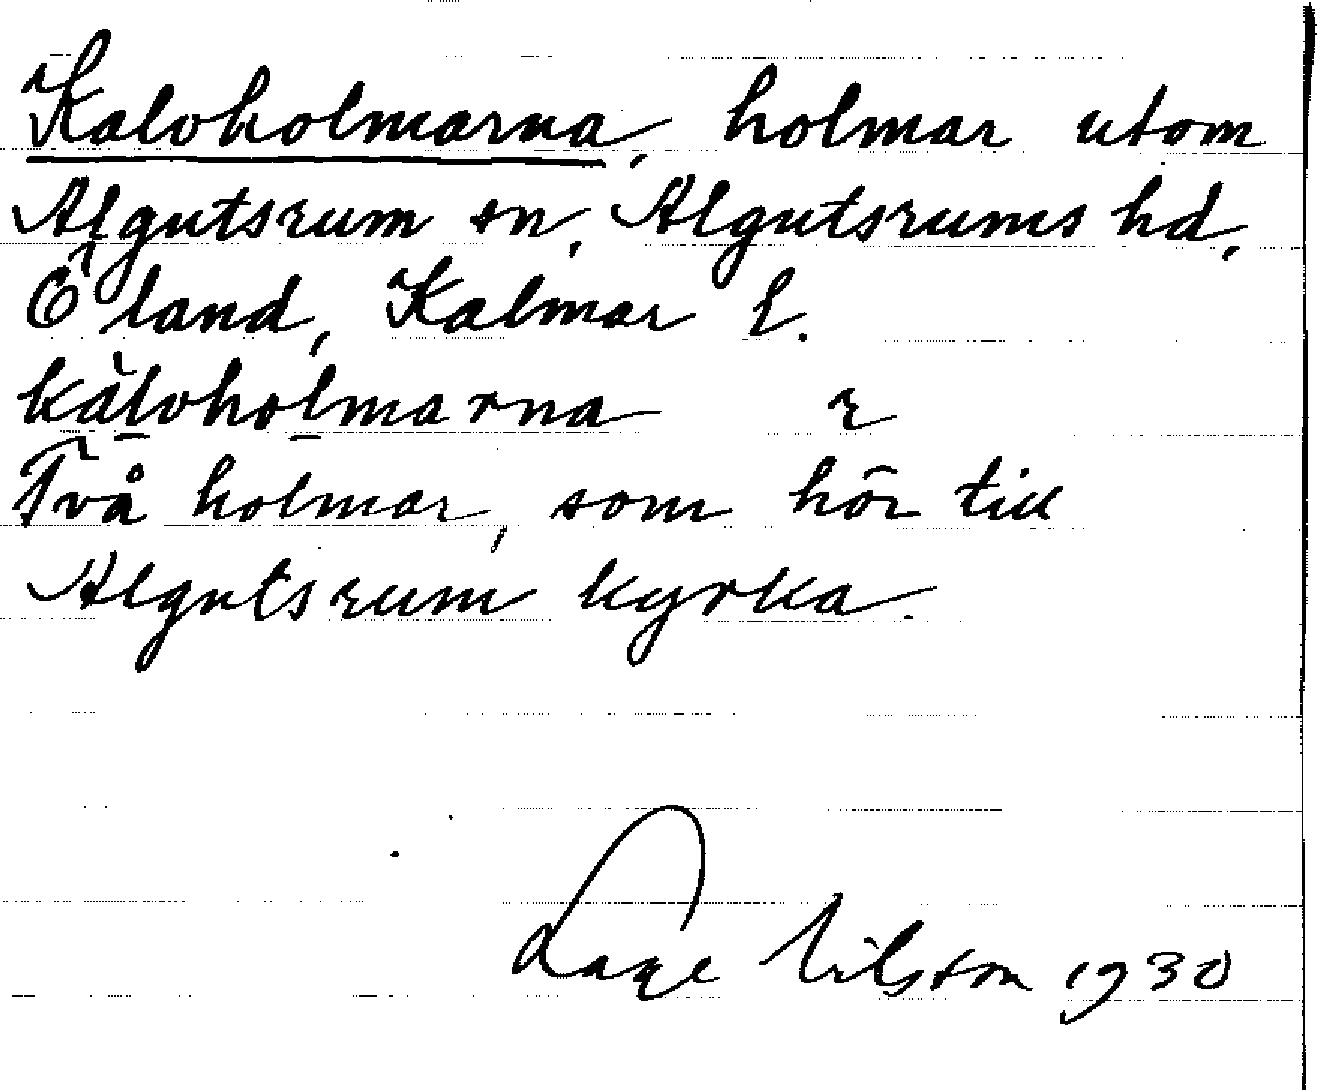 Kalvholmarna, holmar utom
Algutsrum sn, Algutsrums hd,
Öland, Kalmar l.
kàlvholmarna r
Två holmar, som hör till
Algutsrum kyrka.
Lage Nilsson 1930